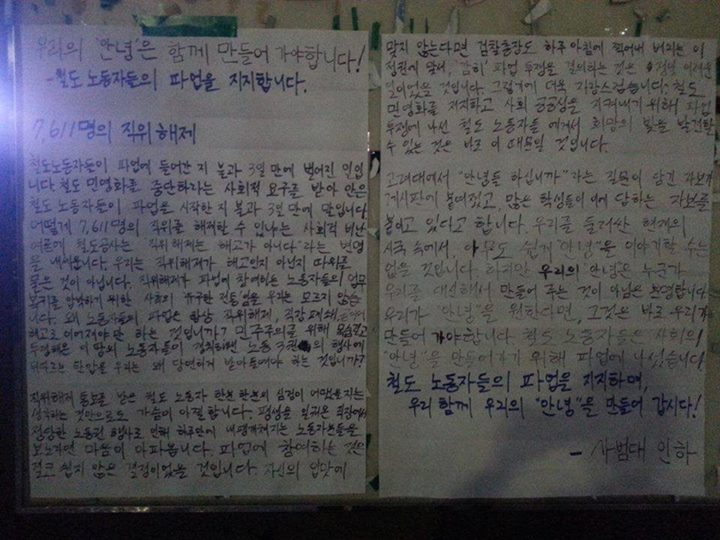 우리의 '안녕'은 함께 만들어 가야합니다!
-철도 노동자들의 파업을 지지합니다.
7,611명의 직위해제
철도노동자들이 파업에 들어간 지 불과 3일 만에 벌어진 일입
니다. 철도 민영화를 중단하라는 사회적 요구를 받아 안은
철도 노동자들이 파업을 시작한 지 불과 3일 만에 말입니다.
어떻게 7,611명의 직위를 해제할 수 있냐는 사회적 비난
여론에 철도공사는 "직위해제는 해고가 아니다"라는 변명
을 내세웁니다. 우리는 직위해제가 해고인지 아닌지 따위를
묻은 것이 아닙니다. 직위해제가 파업에 참여하는 노동자들의 업무
복귀를 압박하기 위한 사회의 유구한 전통임을 우리는 모르지 않습
니다. 왜 노동자들의 파업은 항상 직위해제, 직장폐쇄,
해고로 이어져야만 하는 것입니까? 민주주의를 위해
투쟁해온 이 땅의 노동자들이 쟁취해낸 노동 3권의 행사에
뒤따르는 탄압을 우리는 왜 당연하게 받아들여야 하는 것입니까?
직위해제 통보를 받은 철도 노동자 한분 한분의 심정이 어땠을지는
상상하는 것만으로도 가슴이 아찔합니다. 평생을 일궈온 직장에서
정당한 노동권 행사로 인해 하루만에 내팽개쳐지는 노동자분들을
보노라면 마음이 아파옵니다. 파업에 참여하는 것은
결코 쉽지 않은 결정이었을 것입니다. 자신의 입맛에
맞지 않는다면 검찰총장도 하루 아침에 찍어내 버리는 이
정권에 맞서, '감히' 파업 투쟁을 결의하는 것은 정말 어려운
일이었을 것입니다. 그렇기에 더욱 자랑스럽습니다. 철도
민영화를 저지하고 사회 공공성을 지켜내기 위해 파업
투쟁에 나선 철도 노동자들에게서 희망의 빛을 발견할
수 있는 것은 바로 이 때문일 것입니다.
고려대에서 "안녕들 하십니까"라는 질문이 담긴 자보가
게시판에 붙여졌고, 많은 학생들이 이에 답하는 자보를
붙이고 있다고 합니다. 우리를 둘러싼 현재의
시국 속에서, 아무도 쉽게 "안녕"을 이야기할 수는
없을 것입니다. 하지만 우리의 안녕은 누군가
우리를 대신해서 만들어 주는 것이 아님은 분명합니다.
우리가 "안녕"을 원한다면, 그것은 바로 우리가
만들어 가야합니다. 철도 노동자들은 사회의
"안녕"을 만들어가기 위해 파업에 나섰습니다.
철도 노동자들의 파업을 지지하며,
우리 함께 우리의 "안녕"을 만들어 갑시다!
- 사범대 인하